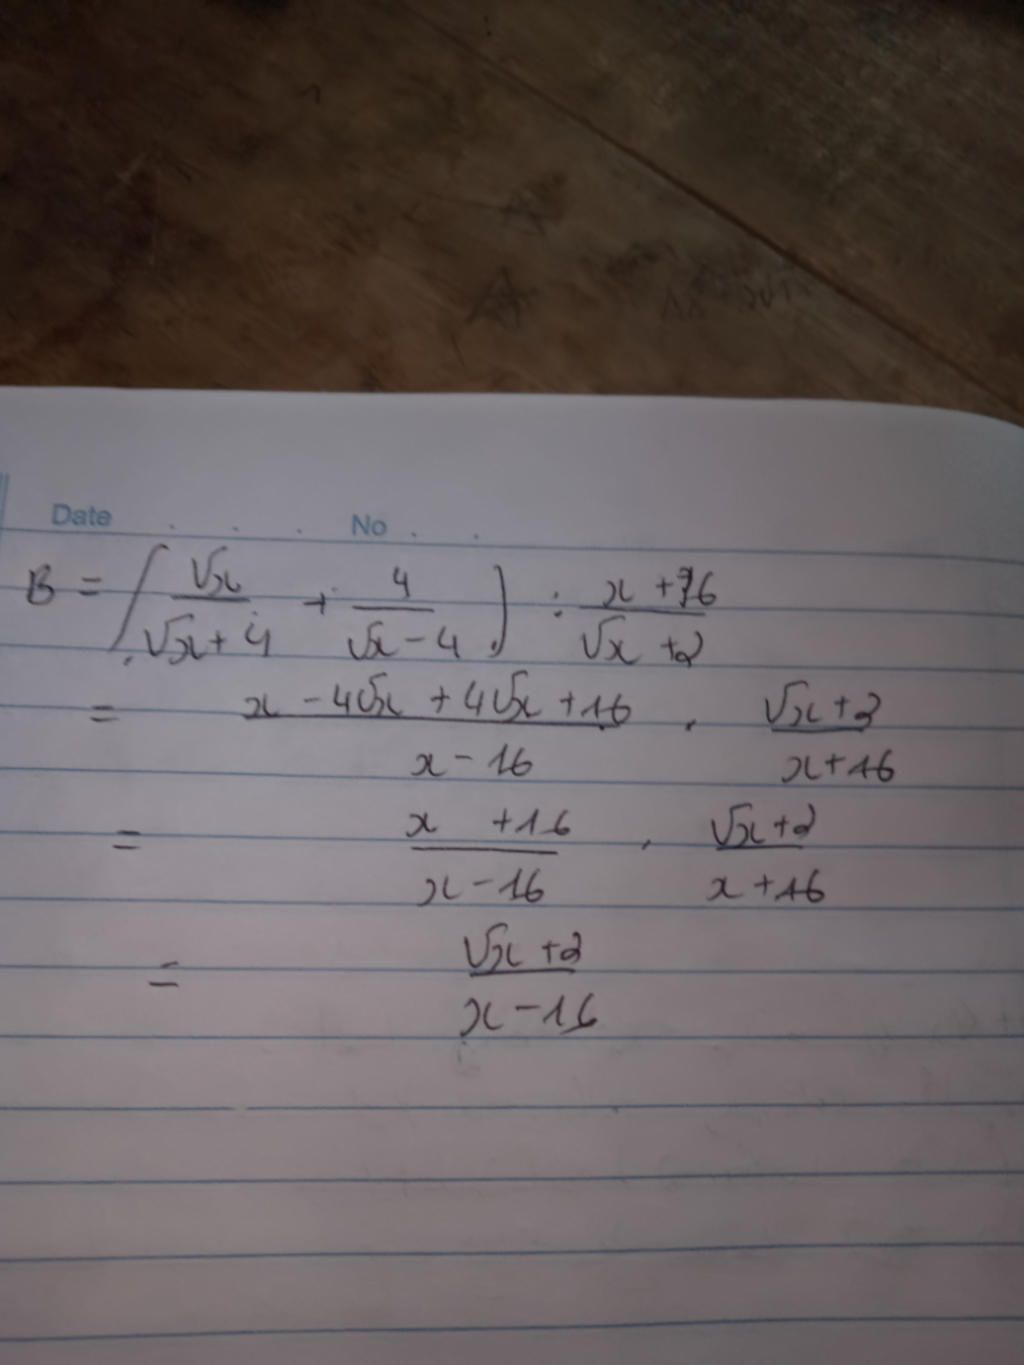 Date . . . No . .
B = (√x/(√x+4) + 4/(√x-4)) : (x+16)/(√x+2)
= (x-4√x+4√x+16)/(x-16) . (√x+2)/(x+16)
= (x +16)/(x-16) . (√x+2)/(x+16)
= (√x+2)/(x-16)